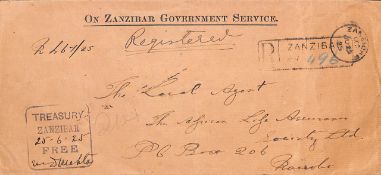 ON ZANZIBAR GOVERNMENT SERVICE.
Registered
R ZANZIBAR
ZANZIBAR
The Local Agent
The African Life Assurance
Society Ltd
P.O. Box 206
Nairobi
TREASURY
ZANZIBAR
25-6-25
FREE